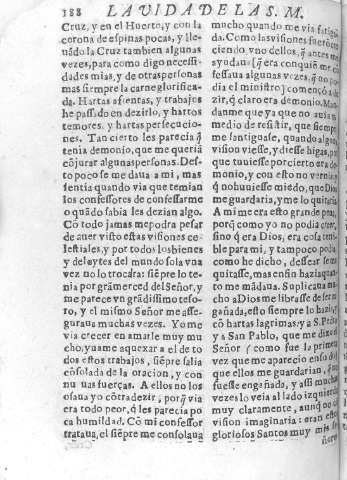 188 LA VIDA DE LA S. M.
Cruz, y en el Huerto, y con la
corona de espinas pocas, y lle-
uãdo la Cruz tambien algunas
vezes, para como digo necessi-
dades mias, y de otras personas
mas siempre la carne glorifica-
da. Hartas afrentas, y trabajos
he passado en dezirlo, y hartos
temores, y hartas persecucio-
nes. Tan cierto les parecia q̃
tenia demonio, que me querià
cõjurar algunas personas. Des-
to poco se me daua a mi, mas
sentia quando via que temian
los confessores de confessarme
o quãdo sabia les dezian algo.
Cõ todo jamas me podra pesar
de auer visto estas visiones ce-
lestiales, y por todos los bienes
y deleytes del mundo sola vna
vez no lo trocára: siẽpre lo te-
nia por grã merced del Señor, y
me parece vn grãdissimo teso-
ro, y el mismo Señor me asse-
guraua muchas vezes. Yo me
via crecer en amarle muy mu-
cho, yuame a quexar a el de to-
dos estos trabajos, siẽpre salia
cõsolada de la oracion, y con
nueuas fuerças. A ellos no los
osaua yo cõtradezir, porq̃ via
era todo peor, q̃ les parecia po
ca humildad. Cõ mi confessor
trataua, el siẽpre me consolaua
mucho quando me via fatiga-
da. Como las visiones fuerõ cre
ciendo, vno dellos, q̃ antes me
ayudaua [q̃ era con quiẽ me cõ
fessaua algunas vezes, q̃ no po
dia el ministro] començò a de-
zir, q̃ claro era demonio. Man-
danme que ya que no auia re-
medio de resistir, que siempre
me santiguasse, quando alguna
vision viesse, y diesse higas, por
que tuuiesse por cierto era de-
monio, y con esto no vernia: y
q̃ no huuiesse miedo, que Dios
me guardaria, y me lo quitaria
A mi me era esto grande pena,
porq̃ como yo no podia creer,
sino q̃ era Dios, era cosa terri-
ble para mi, y tampoco podia
como he dicho, dessear se me
quitasse, mas en fin hazia quan-
to me mãdaua. Suplicaua mu-
cho a Dios me librasse de ser en
gañada, esto siempre lo hazia, y
cõ hartas lagrimas: y a S. Pedro
y a San Pablo, que me dixo el
Señor (como fue la primera
vez que me aparecio en su dia)
que ellos me guardarian, q̃ no
fuesse engañada, y assi muchas
vezes los veia al lado izquierdo
muy claramente, aunq̃ no cõ
vision imaginaria: eran estos
gloriosos Santos muy mis se-